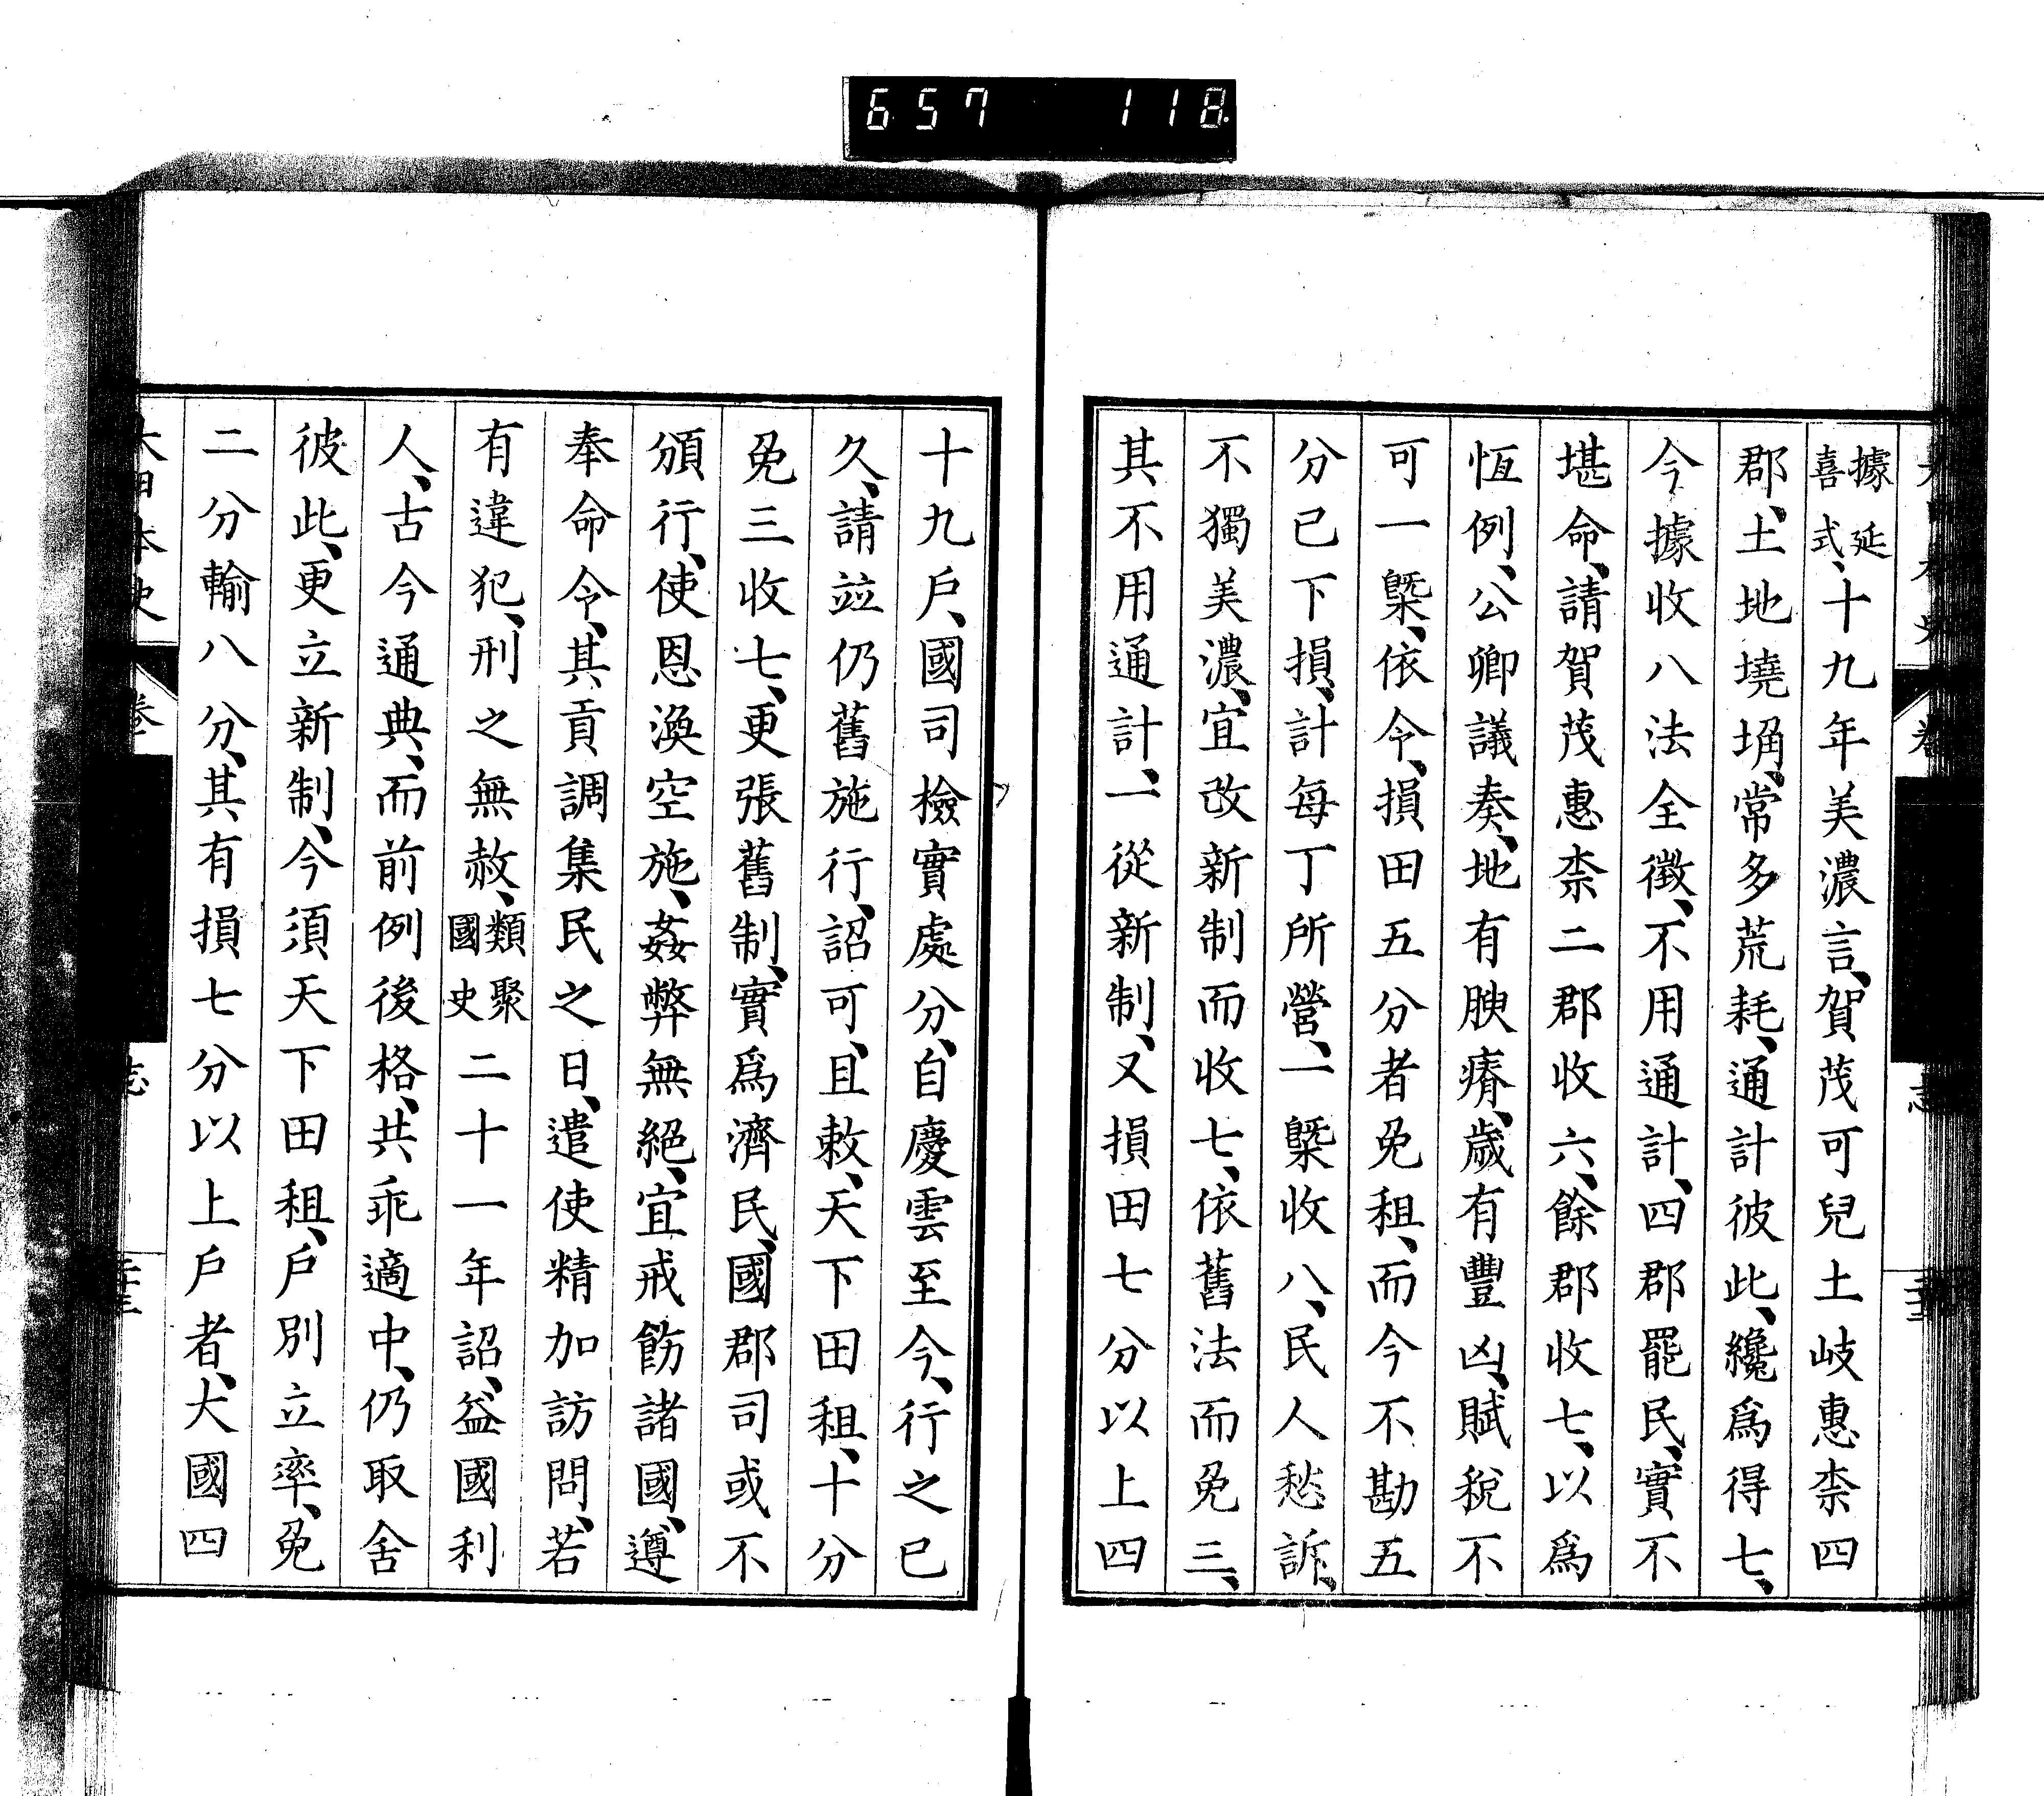 657 118
據延喜式、十九年美濃言、賀茂可兒土岐惠柰四
郡、土地墝埆、常多荒耗、通計彼此、纔爲得七、
今據收八法全徴、不用通計、四郡罷民、實不
堪命、請賀茂惠柰二郡收六、餘郡收七、以爲
恆例、公卿議奏、地有腴瘠、歲有豐凶、賦稅不
可一槩、依令、損田五分者免租、而今不勘五
分已下損、計每丁所營、一槩收八、民人愁訴、
不獨美濃、宜改新制而收七、依舊法而免三、
其不用通計、一從新制、又損田七分以上四
十九戶、國司檢實處分、自慶雲至今、行之已
久、請竝仍舊施行、詔可、且敕、天下田租、十分
免三收七、更張舊制、實爲濟民、國郡司或不
頒行、使恩渙空施、姦弊無絕、宜戒飭諸國、遵
奉命令、其貢調集民之日、遣使精加訪問、若
有違犯、刑之無赦、類聚國史二十一年詔、益國利
人、古今通典、而前例後格、共乖適中、仍取舍
彼此、更立新制、今須天下田租、戶別立率、免
二分輸八分、其有損七分以上戶者、大國四
大日本史 卷 志